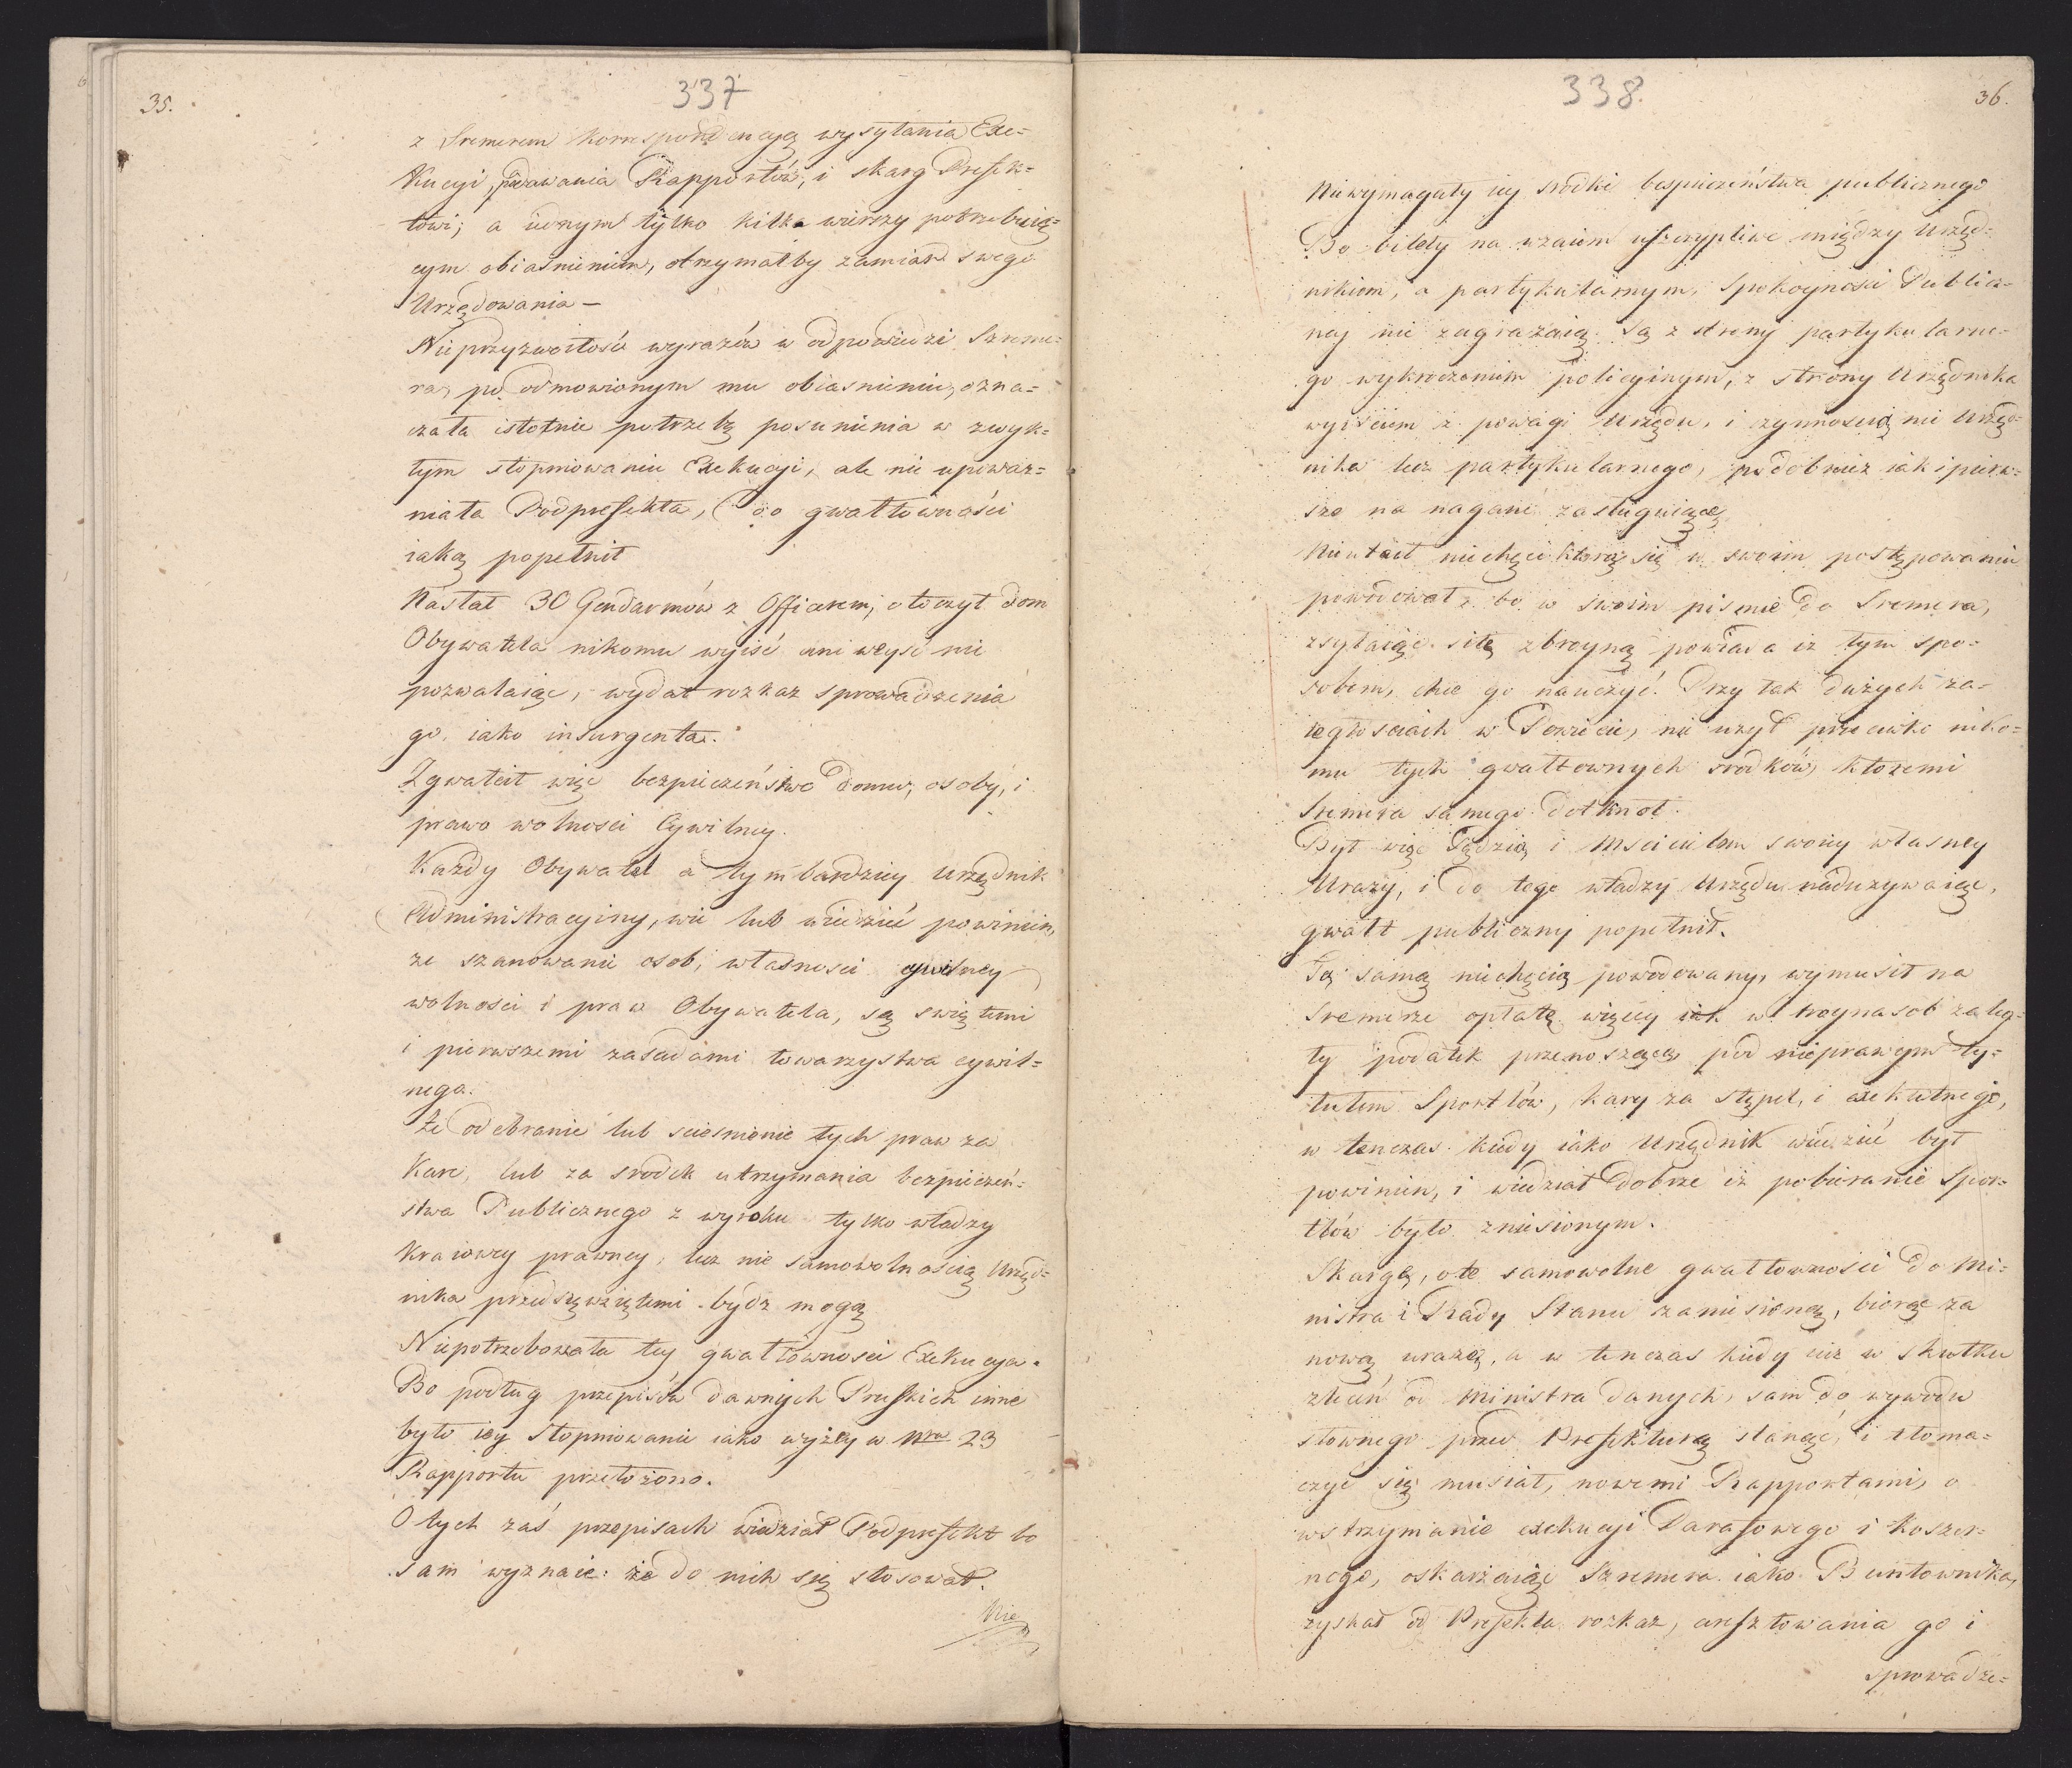 35.
337
z Sremerem korrespondencyą wysyłania Exe=
kucyi, podawania Rapportów, i skarg Prefek=
towi; a iednym tylko kilka wierszy potrzebuią=
cym obiasnieniem, otrzymałby zamiar swego
Urzędowania —
Nieprzyzwoitość wyrazów w odpowiedzi Szreme=
ra, po odmowionym mu obiasnieniu, ozna=
czała istotnie potrzebę posunienia w zwyk=
łym stopniowaniu Exekucyi, ale nie upoważ=
niała Podprefekta, do gwałtowności
iaką popełnił
Nasłał 30 Gendarmów z Officerem, otoczył dom
Obywatela nikomu wyiść ani weyść nie
pozwalaiąc, wydał rozkaz sprowadzenia
go, iako insurgenta.
Zgwałcił więc bezpieczeństwo domu, osoby, i
prawo wolnosci Cywilney.
Każdy Obywatel a tym bardziey Urzędnik
Administracyiny, wie lub wiedzieć powinien,
że szanowanie osob, własnosci cywilney
wolnosci i praw Obywatela, są swiętemi
i pierwszemi zasadami towarzystwa cywil=
nego.
Że odebranie lub scieśnienie tych praw za
Karę, lub za srodek utrzymania bezpieczeń=
stwa Publicznego z wyroku tylko władzy
Kraiowey prawney, lecz nie samowolnością Urzęd=
nika przedsięwziętemi bydz mogą
Niepotrzebowała tey gwałtowności Exekucya.
Bo podług przepisów dawnych Pruskich inne
było iey stopniowanie iako wyżey w Nro 23
Rapportu przełożono.
O tych zaś przepisach wiedział Podprefekt bo
sam wyznaie: że do nich się stosował.
Nie
338.
36.
Niewymagały iey srodki bespieczeństwa publicznego
Bo bilety na wzaiem uszczypliwe między Urzęd=
nikiem, a partykularnym, Spokoyności Publicz=
ney nie zagrażaią. Są z strony partykularne=
go wykroczeniem policyinym, z strony Urzędnika
wyisciem z powagi Urzędu, i czynnoscią nie Urzęd=
nika lecz partykularnego, podobnież iak i pierw=
sze na naganę zasługuiącą
Nieutaił niechęci którą się w swoim postępowaniu
powodował, bo w swoim pismie do Sremera,
zsyłaiąc siłę zbroyną powiada iż tym spo=
sobem, chce go nauczyć. Przy tak dużych za=
ległosciach w Powiecie, nie użył przeciwko niko=
mu tych gwałtownych srodków, ktoremi
Sremera samego dotknoł.
Był więc Sędzią i Mscicielem swoiey własney
Urazy, i do tego władzy Urzędu nadużywaiąc,
gwałt publiczny popełnił.
Tą samą niechęcią powodowany, wymusił na
Sremerze opłatę więcey iak w troynasob zaleg=
ły podatek przenoszącą pod nieprawym ty=
tułem Sportlów, kary za stępel, i exekutnego,
w tenczas kiedy iako Urzędnik wiedzieć był
powinien, i wiedział dobrze iż pobieranie Spor=
tlów było zniesionym.
Skargę, o te samowolne gwałtowności do Mi=
nistra i Rady Stanu zaniesioną, biorąc za
nową urazę, a w tenczas kiedy iuż w skutku
zleceń od Ministra danych, sam do wywodu
słownego przed Prefekturą stanąć, i tłoma=
czyć się musiał, nowemi Rapportami, o
wstrzymanie exekucyi Darasowego i Koszer=
nego, oskarżaiąc Szremera iako Buntownika,
zyskał od Prefekta rozkaz, aresztowania go i
sprowadze=